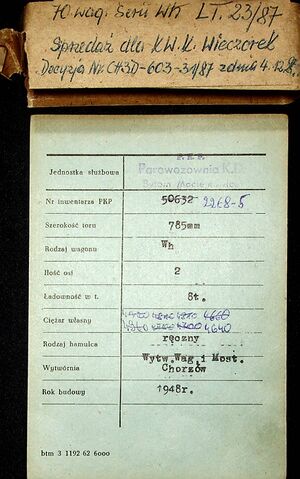 70 wag. Serii Wh LT. 23/87
Sprzedaż dla KW.K. Wieczorek
Decyzja Nr CH3D-603-31/87 z dnia 4.12.
P. K. P.
Jednostka służbowa Parowozownia K.D.
Bytom
Nr inwentarza PKP 50632 2268-5
Szerokość toru 785mm
Rodzaj wagonu Wh
Ilość osi 2
Ładowność w t. 8t.
4660
Ciężar własny 4640
Rodzaj hamulca ręczny
Wytw.Wag.i Most.
Wytwórnia Chorzów
Rok budowy 1948r.
btm 3 1192 62 6000